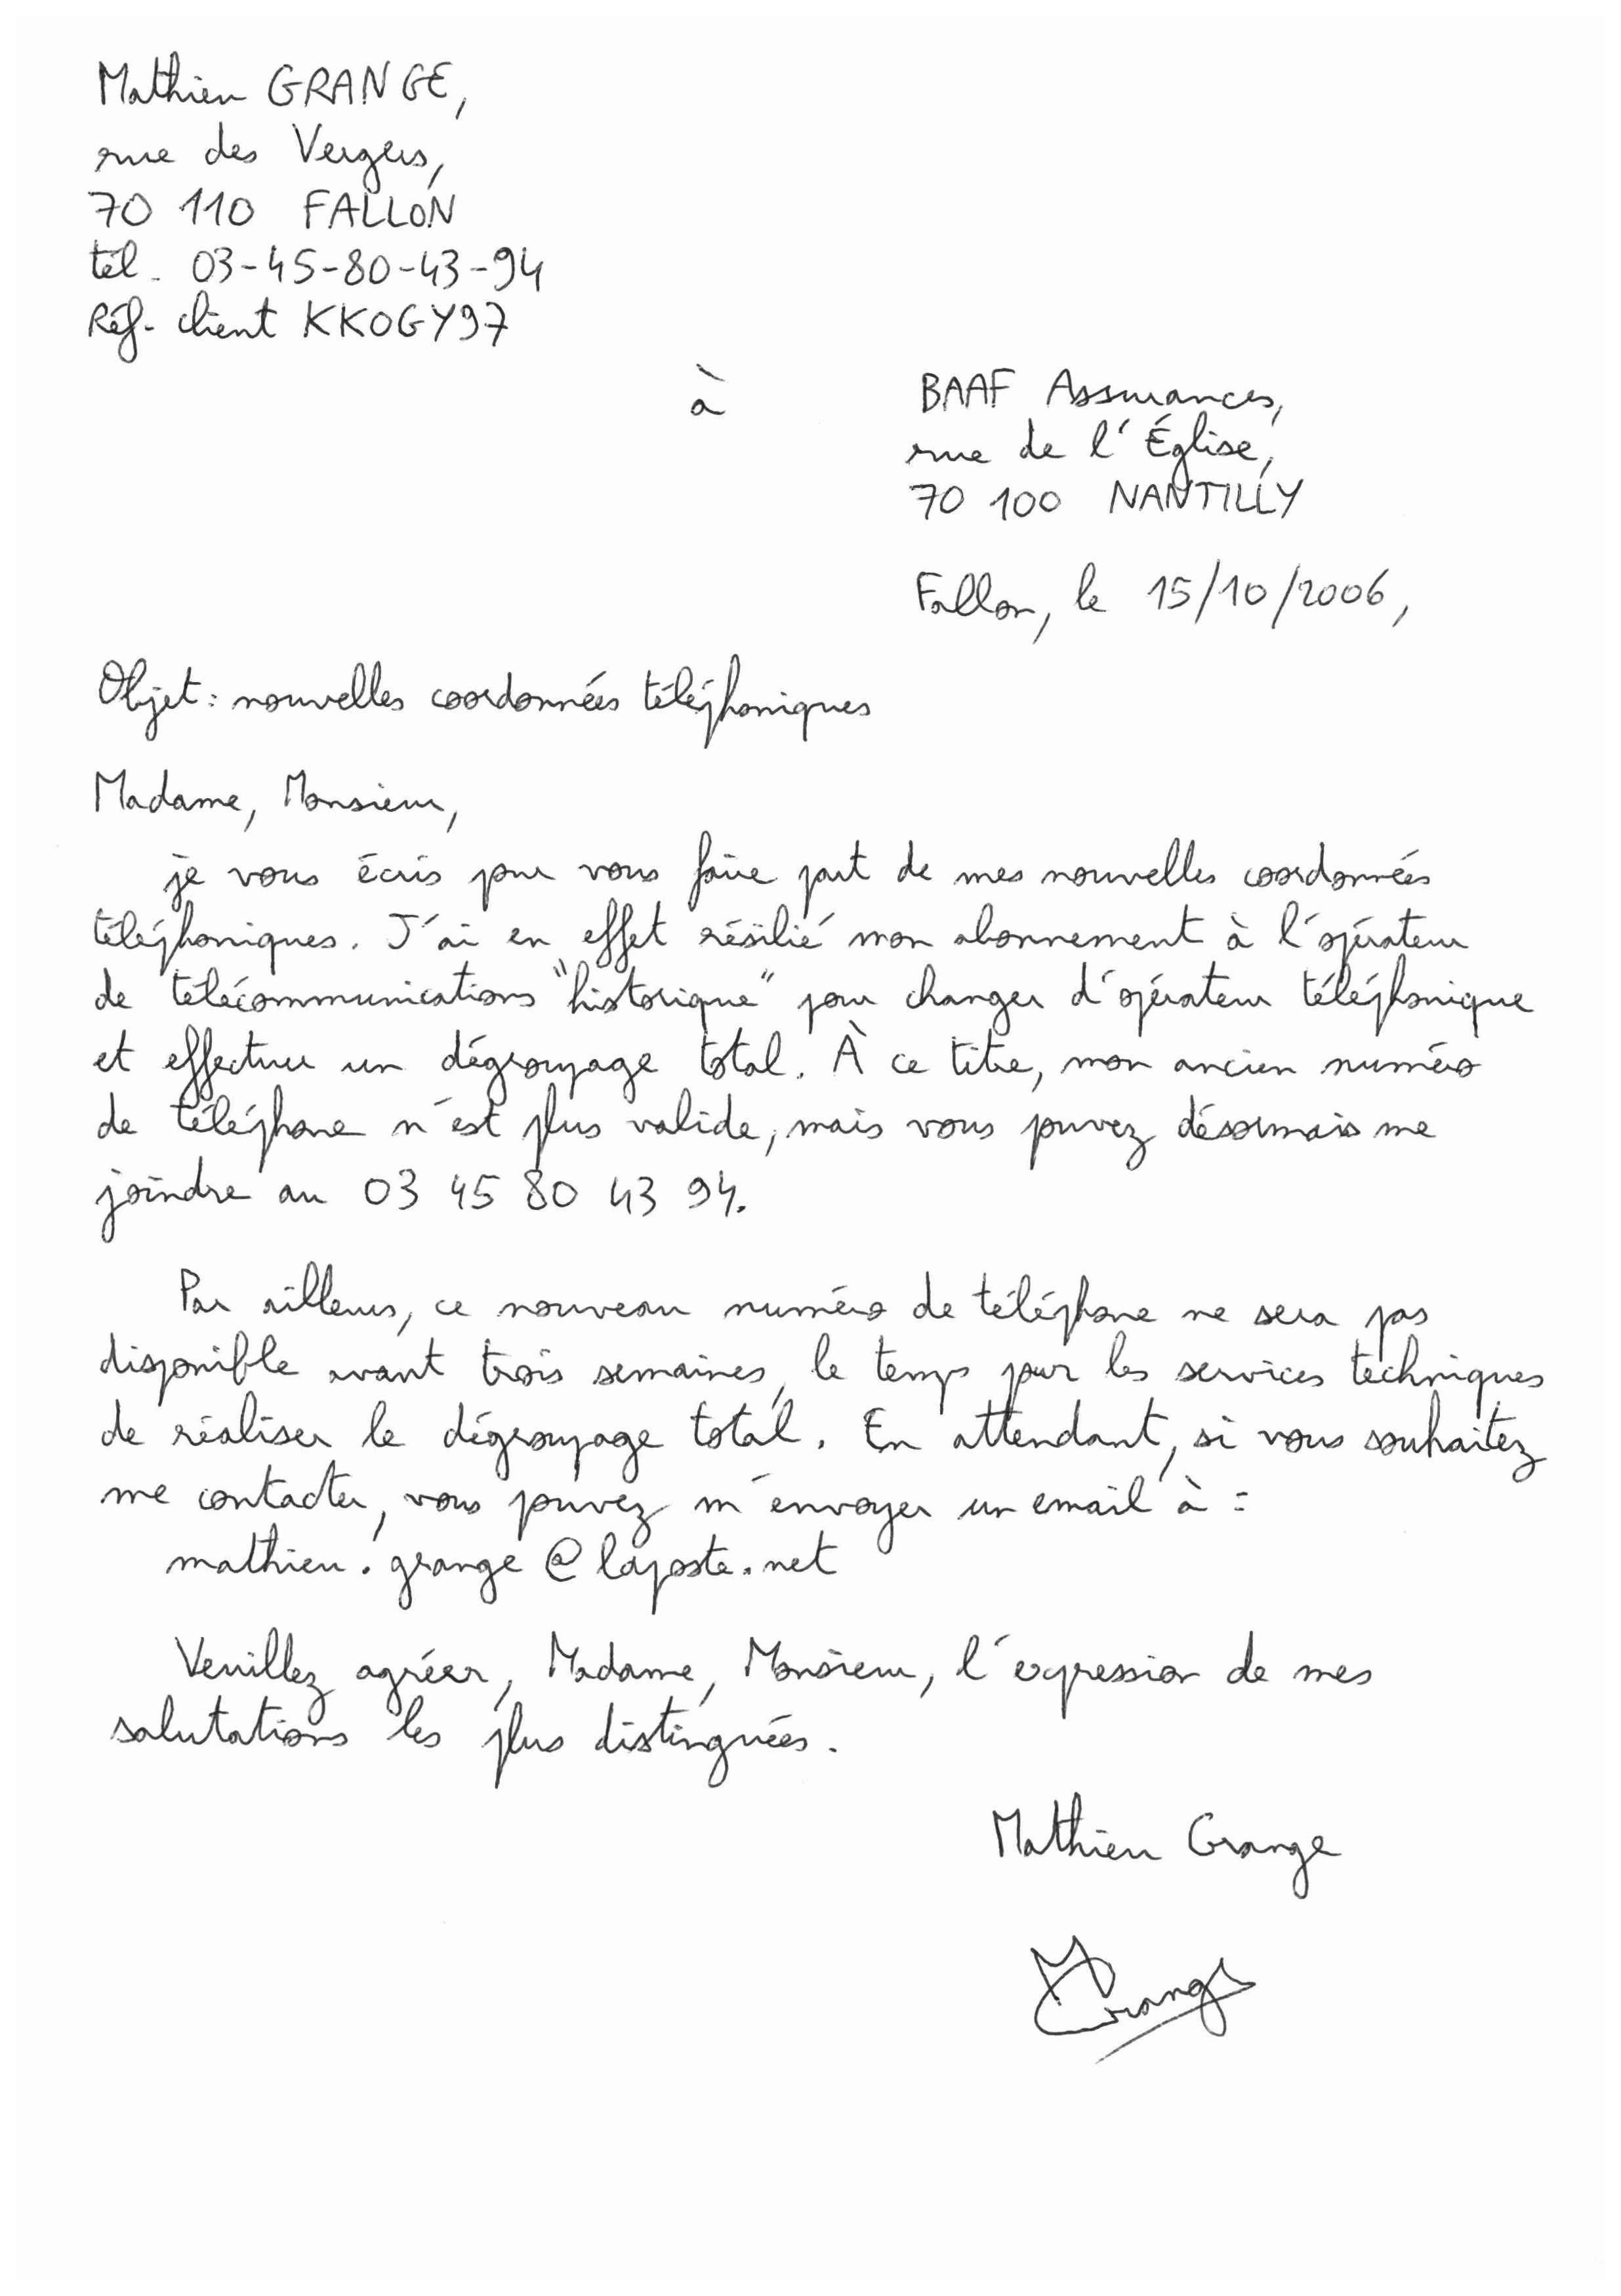 Mathieu GRANGE,
rue des Vergers,
70 110 FALLON
tél. 03-45-80-43-94
Réf. client KKOGY97
à
BAAF Assurances,
rue de l'Église,
70 100 NANTILLY
Fallon, le 15/10/2006,
Objet : nouvelles coordonnées téléphoniques
Madame, Monsieur,
je vous écris pour vous faire part de mes nouvelles coordonnées
téléphoniques. J'ai en effet résilié mon abonnement à l'opérateur
de télécommunications "historique" pour changer d'opérateur téléphonique
et effectuer un dégroupage total. À ce titre, mon ancien numéro
de téléphone n'est plus valide, mais vous pouvez désormais me
joindre au 03 45 80 43 94.
Par ailleurs, ce nouveau numéro de téléphone ne sera pas
disponible avant trois semaines, le temps pour les services techniques
de réaliser le dégroupage total. En attendant, si vous souhaitez
me contacter, vous pouvez m'envoyer un email à :
mathieu.grange@laposte.net
Veuillez agréer, Madame, Monsieur, l'expression de mes
salutations les plus distinguées.
Mathieu Grange
MGrange